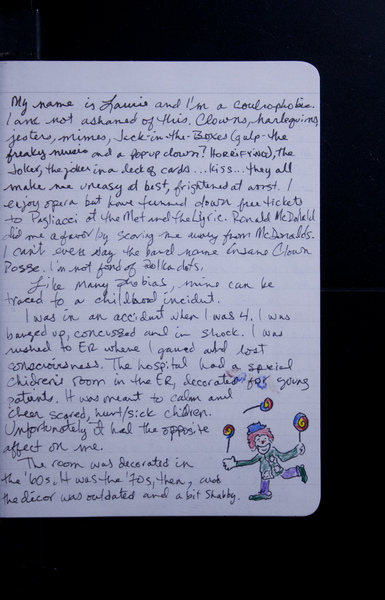 My name is Laurie and I'm a coulrophobic.
I am not ashamed of this. Clowns, harlequins,
jesters, mimes, Jack-in-the-Boxes (gulp-the
freaky music and a pop up clown? HORRIFYING), The
Joker, the joker in a deck of cards... Kiss... they all
make me uneasy at best, frightened at worst. I
enjoy opera but have turned down free tickets
to Pagliacci at the Met and the Lyric. Ronald McDonald
did me a favor by scaring me away from McDonalds.
I can't even say the band name Insane Clown
Posse. I'm not fond of polka dots.
Like many phobias, mine can be
traced to a childhood incident.
I was in an accident when I was 4. I was
banged up, concussed and in shock. I was
rushed to ER where I gained and lost
consciousness. The hospital had a special
children's room in the ER, decorated for young
patients. It was meant to calm and
cheer scared, hurt/sick children.
Unfortunately it had the opposite
affect on me.
The room was decorated in
the '60s. It was the '70s, then, and
the decor was outdated and a bit shabby.